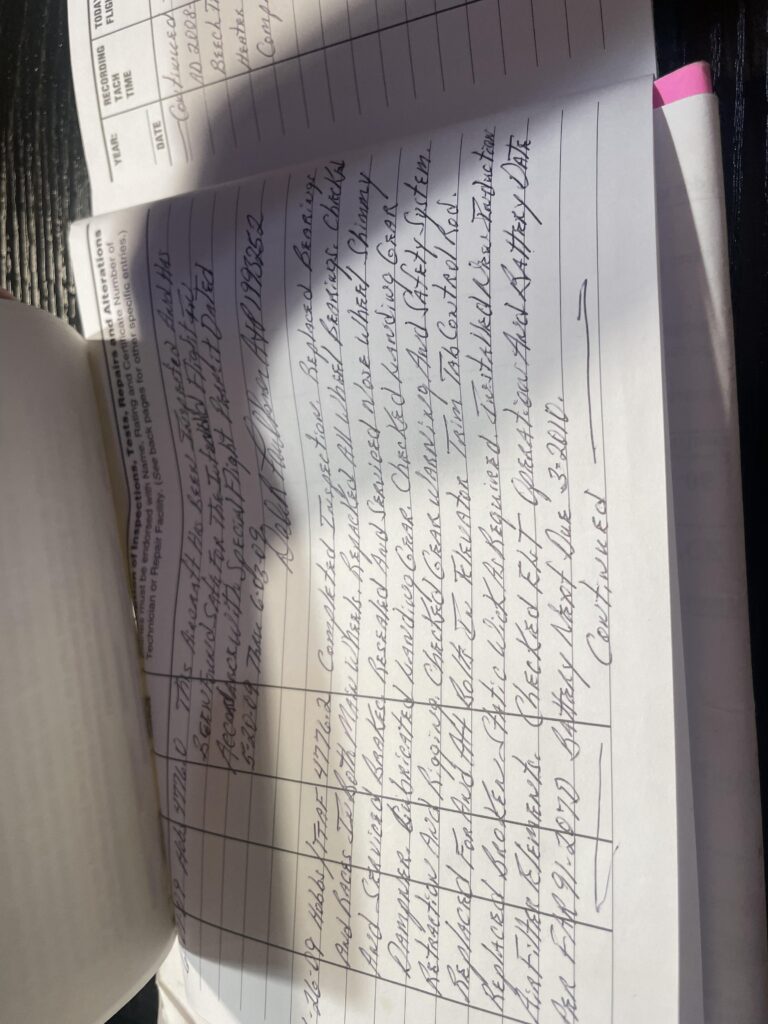 YEAR:
RECORDING TACH TIME
TODAY'S FLIGHT
DATE
Continued
AD 2008
Beech
Heater
Comp
of Inspections, Tests, Repairs and Alterations
must be endorsed with Name, Rating and Certificate Number of
Technician or Repair Facility. (See back pages for other specific entries.)
09 Hobbs 4776.0 This Aircraft Has Been Inspected And Has
Been Found Safe For The Intended Flight in
Accordance with Special Flight Permit Dated
5-20-09 Thru 6-03-09
A&P 1995252
-26-09 Hobbs/TAF 4776.2 Completed Inspection. Replaced Bearings
And Races In Both Main Wheels. Repacked All Wheel Bearings. Checked
And Serviced Brakes. Resealed And Serviced Nose Wheel Shimmy
Dampner. Lubricated Landing Gear. Checked Landing Gear
Retraction And Rigging. Checked Gear Warning And Safety System.
Replaced Fwd And Aft Bolts In Elevator Trim Tab Control Rod.
Replaced Broken Static Wick As Required. Installed New Induction
Air Filter Elements. Checked ELT Operation And Battery Date
Per FAR 91-207D Battery Next Due 3-2010.
Continued